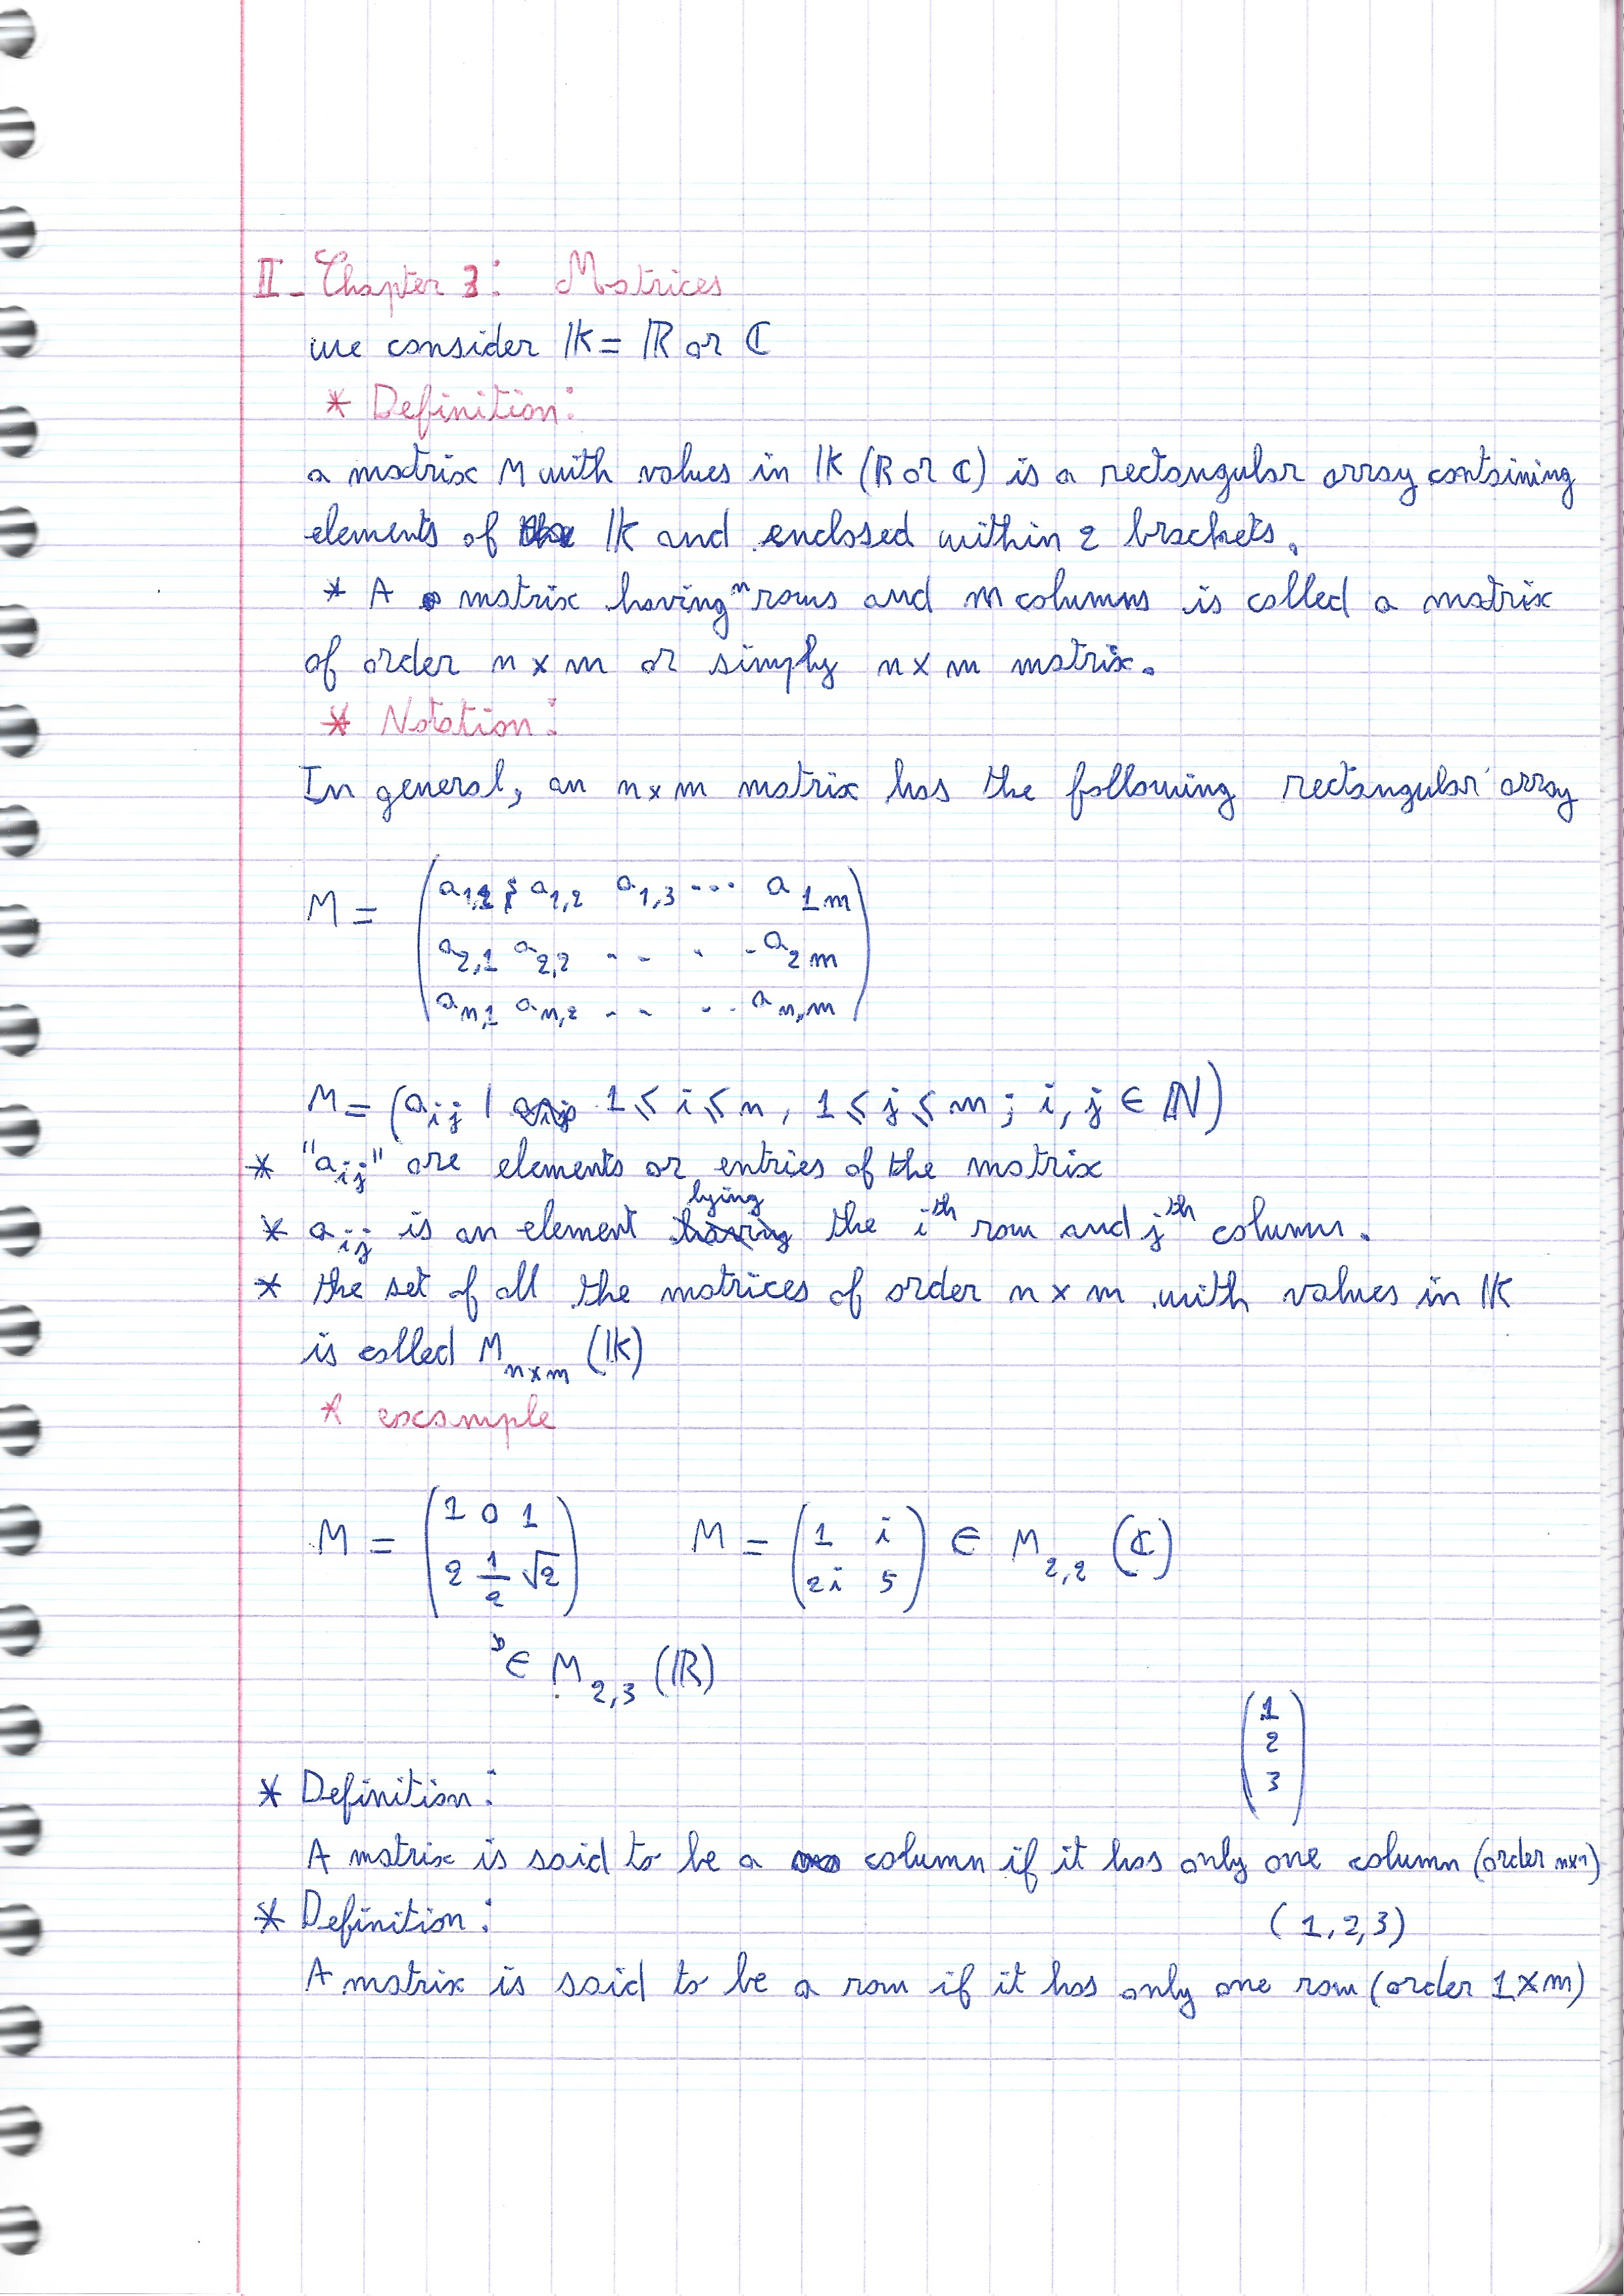 II - Chapter 3: Matrices
we consider 𝕂 = ℝ or ℂ
* Definition:
a matrix M with values in 𝕂 (ℝ or ℂ) is a rectangular array containing
elements of 𝕂 and enclosed within 2 brackets.
* A matrix having n rows and m columns is called a matrix
of order n × m or simply n × m matrix.
* Notation:
In general, an n × m matrix has the following rectangular array
M = ( a1,1 a1,2 a1,3 ... a1m
a2,1 a2,2 - - . - a2m
an,1 an,2 - - .. an,m )
M = (aij | 1 ⩽ i ⩽ n, 1 ⩽ j ⩽ m ; i, j ∈ ℕ)
* "aij" are elements or entries of the matrix
* aij is an element lying the ith row and jth column.
* the set of all the matrices of order n × m with values in 𝕂
is called M n×m (𝕂)
* example
M = ( 1 0 1
2 1/2 √2 )
M = ( 1 i
2i 5 ) ∈ M2,2 (ℂ)
∈ M2,3 (ℝ)
( 1
2
3 )
* Definition:
A matrix is said to be a column if it has only one column (order n×1)
* Definition:
(1, 2, 3)
A matrix is said to be a row if it has only one row (order 1 × m)